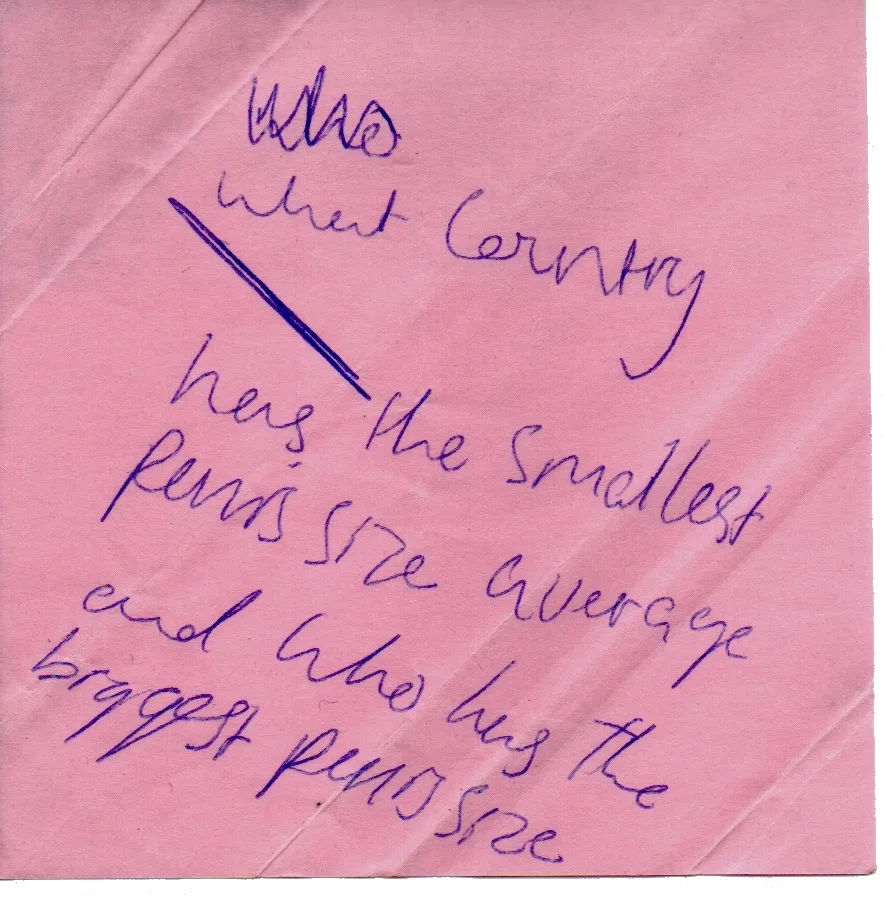 Who
what Country
has the smallest
Penis size average
and who has the
biggest penis size